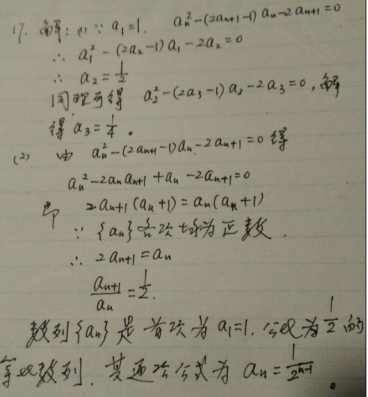 17. 解: (1) ∵ a₁=1. aₙ²-(2aₙ₊₁-1)aₙ-2aₙ₊₁=0
∴ a₁²-(2a₂-1)a₁-2a₂=0
∴ a₂=1/2
同理可得 a₂²-(2a₃-1)a₂-2a₃=0, 解
得 a₃=1/4。
(2) 由 aₙ²-(2aₙ₊₁-1)aₙ-2aₙ₊₁=0 得
aₙ²-2aₙaₙ₊₁+aₙ-2aₙ₊₁=0
即 2aₙ₊₁(aₙ+1)=aₙ(aₙ+1)
∵ {aₙ}各项均为正数.
∴ 2aₙ₊₁=aₙ
aₙ₊₁/aₙ=1/2.
数列{aₙ}是首项为a₁=1. 公比为1/2的
等比数列. 其通项公式为 aₙ=1/2ⁿ⁻¹。